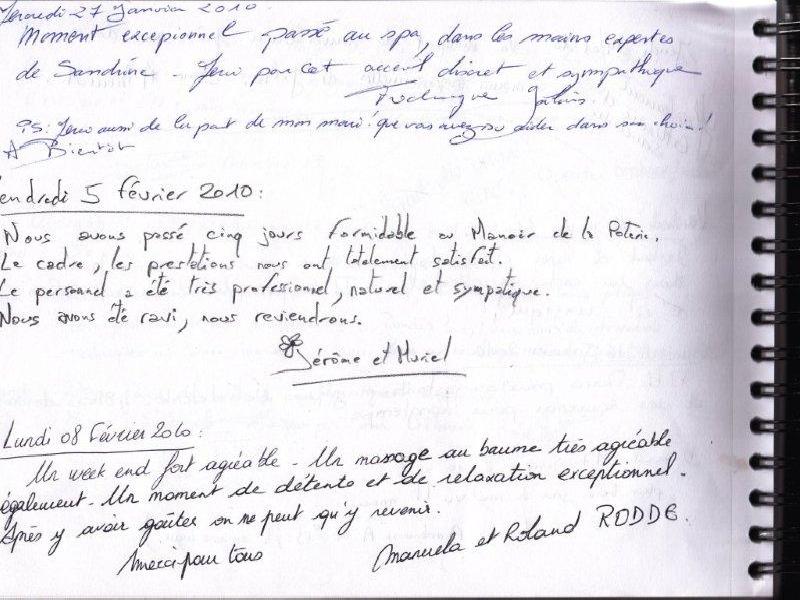 Mercredi 27 Janvier 2010.
Moment excepionnel passé au spa, dans les mains expertes
de Sandrine - pour cet accueil discret et sympathique
PS: aussi de la part de mon mari! que vous avez su aider dans son choix!
A Bientôt
Vendredi 5 Février 2010:
Nous avons passé cinq jours formidable au Manoir de la Poterie.
Le cadre, les prestations nous ont totalement satisfait.
Le personnel a été très professionnel, naturel et sympatique.
Nous avons été ravi, nous reviendrons.
Jérôme et Muriel
Lundi 08 Février 2010:
Un week end fort agréable - Un massage au baume très agréable
également. Un moment de détente et de relaxation exceptionnel.
Après y avoir goûter on ne peut qu'y revenir.
Merci pour tous
Manuela et Roland RODDE.